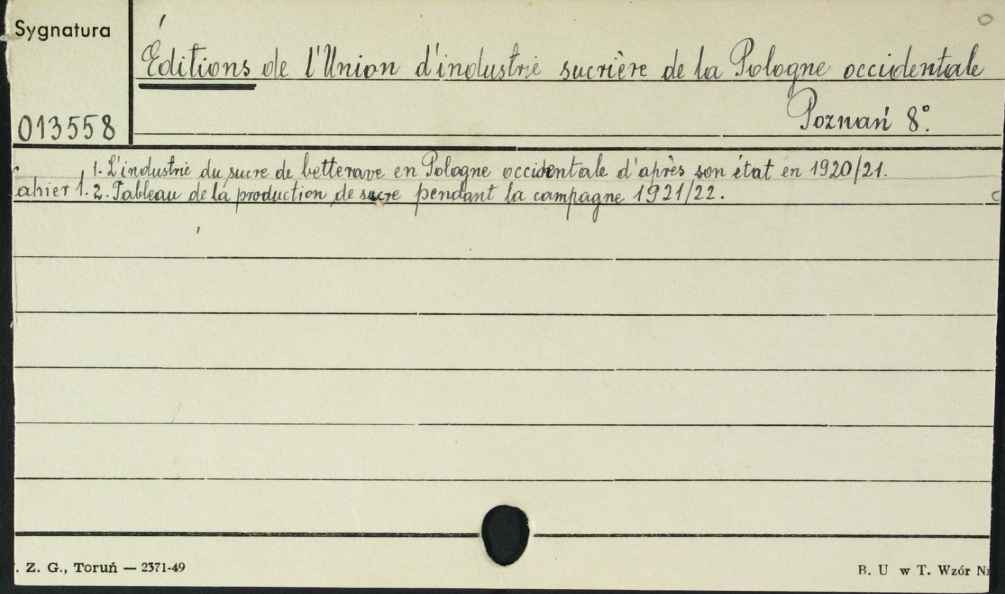 Sygnatura
Éditions de l'Union d'industrie sucrière de la Pologne occidentale
013558
Poznań 8°.
1. L'industrie du sucre de betterave en Pologne occidentale d'après son état en 1920/21.
ahier 1. 2. Tableau de la production de sucre pendant la campagne 1921/22.
. Z. G., Toruń — 2371-49
B. U w T. Wzór Nr